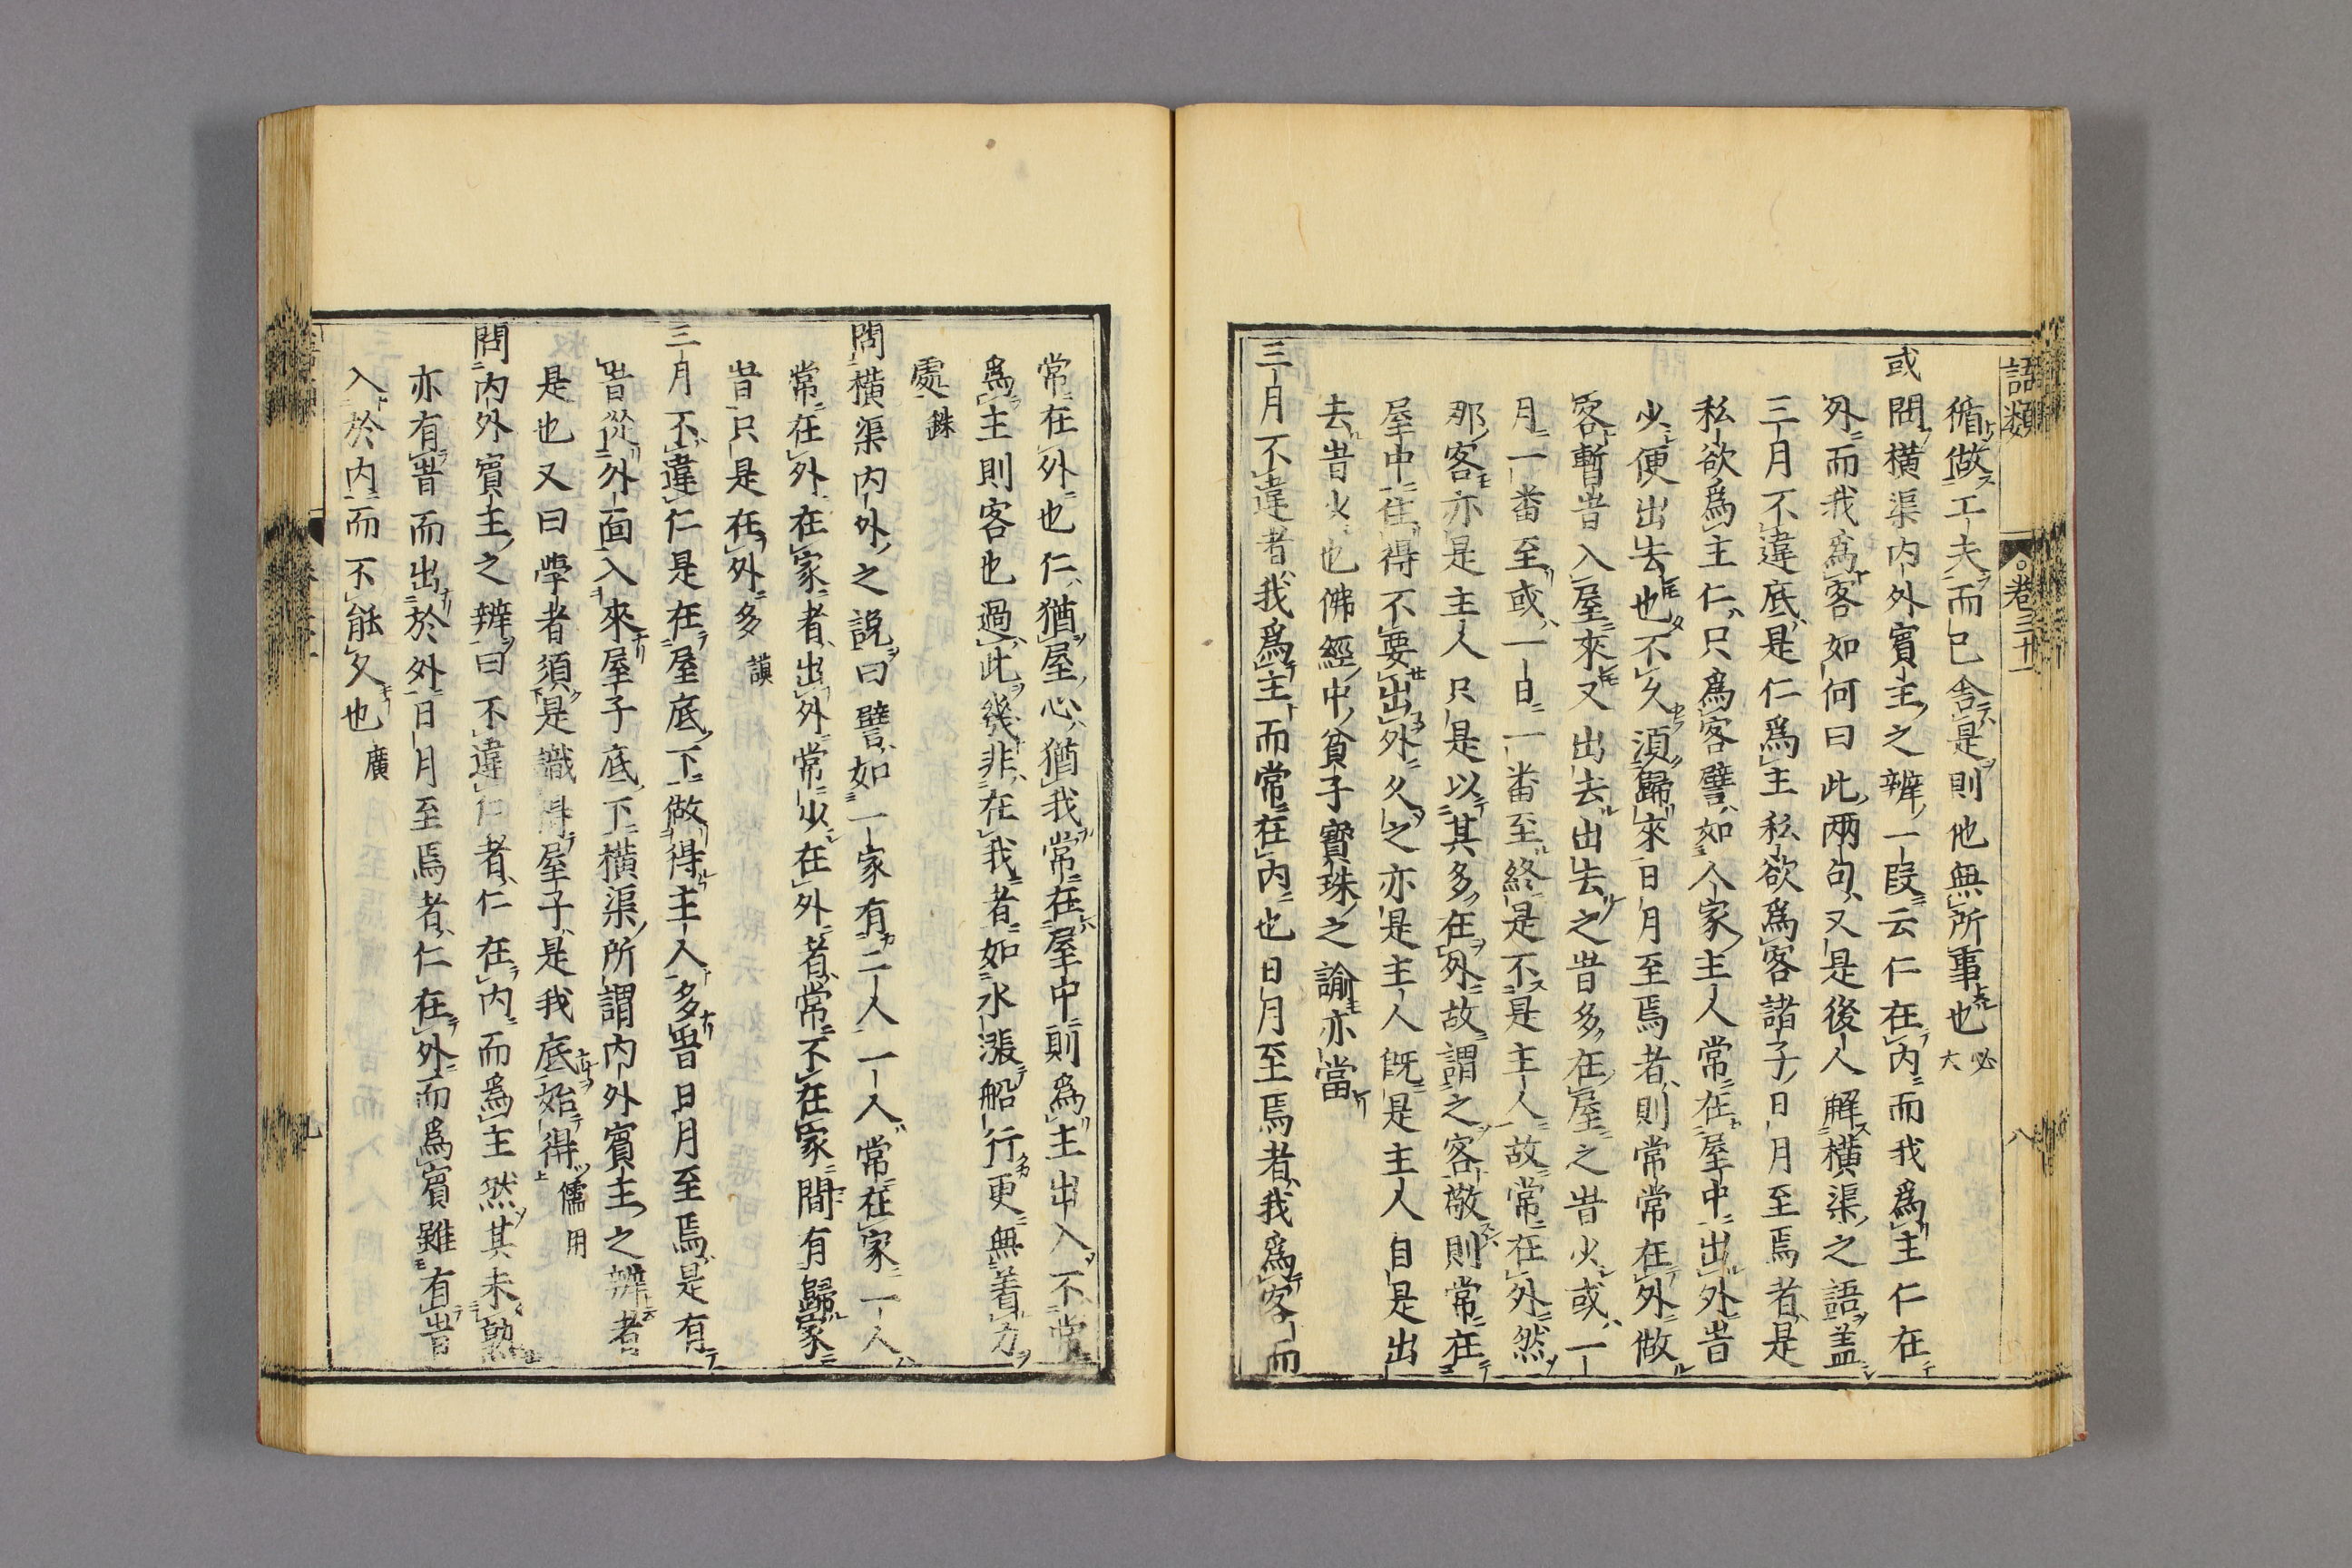 語類
卷三十一
八
循做工夫而已舍是則他無所事也必大
或問横渠内外賓主之辨一段云仁在内而我爲主仁在
外而我爲客如何曰此兩句又是後人解横渠之語盖
三月不違底是仁爲主私欲爲客諸子日月至焉者是
私欲爲主仁只爲客譬如人家主人常在屋中出外旹
少便出去也不久須歸來日月至焉者則常常在外做
客暫旹入屋來又出去出去之旹多在屋之旹少或一
月一番至或一日一番至終是不是主人故常在外然
那客亦是主人只是以其多在外故謂之客敬則常在
屋中住得不要出外久之亦是主人既是主人自是出
去旹少也佛經中貧子寳珠之諭亦當
三月不違者我爲主而常在内也日月至焉者我爲客而
常在外也仁猶屋心猶我常在屋中則爲主出入不常
爲主則客也過此幾非在我者如水漲船行更無着力
處銖
問横渠内外之説曰譬如一家有二人一人常在家一人
常在外在家者出外常少在外者常不在家間有歸家
旹只是在外多㽦
三月不違仁是在屋底下做得主人多旹日月至焉是有
旹從外面入來屋子底下横渠所謂内外賓主之辨者
是也又曰學者須是識得屋子是我底始得儒用
問内外賓主之辨曰不違仁者仁在内而爲主然其未熟
亦有旹而出於外日月至焉者仁在外而爲賓雖有旹
入於内而不能久也廣
九